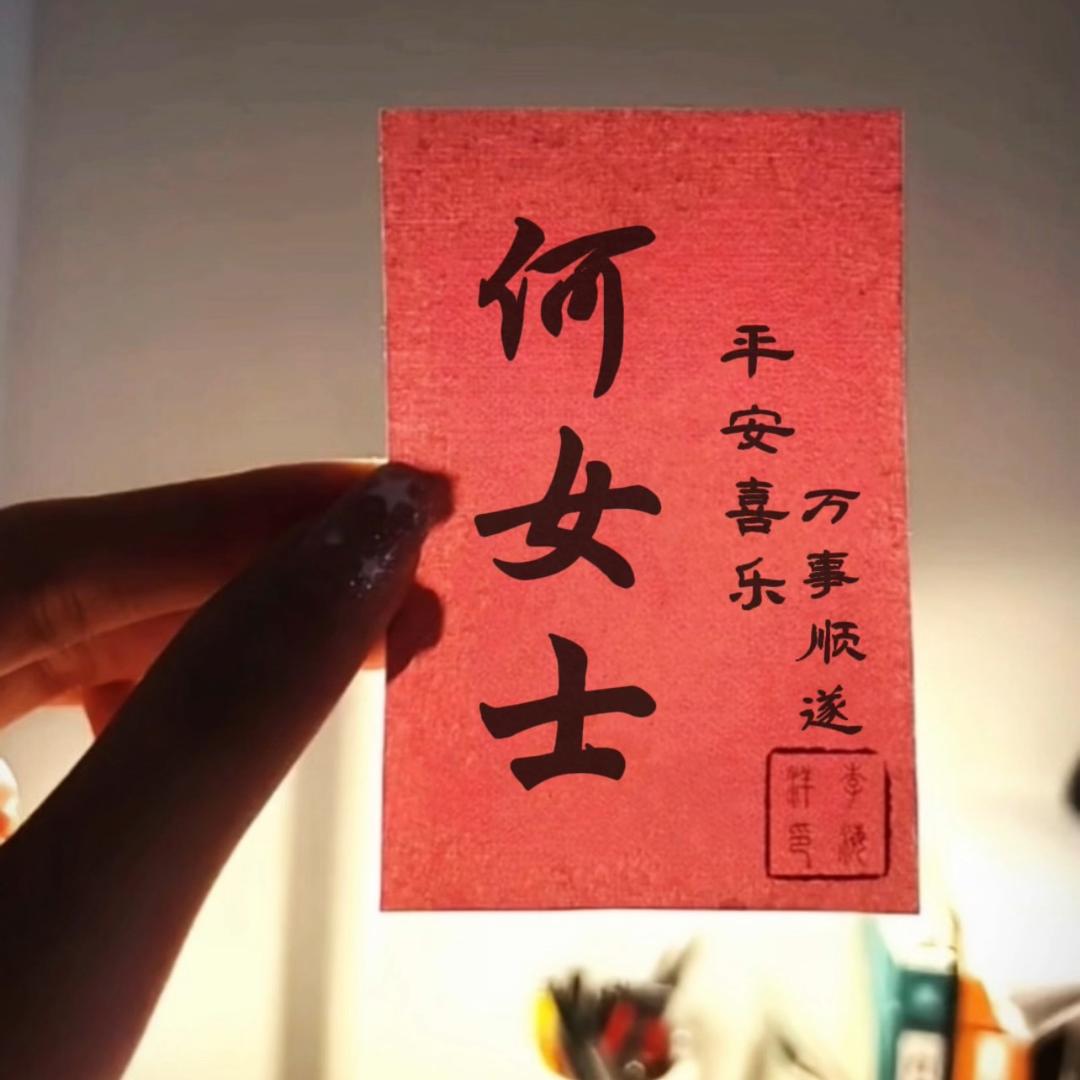 何女士
平安喜乐
万事顺遂